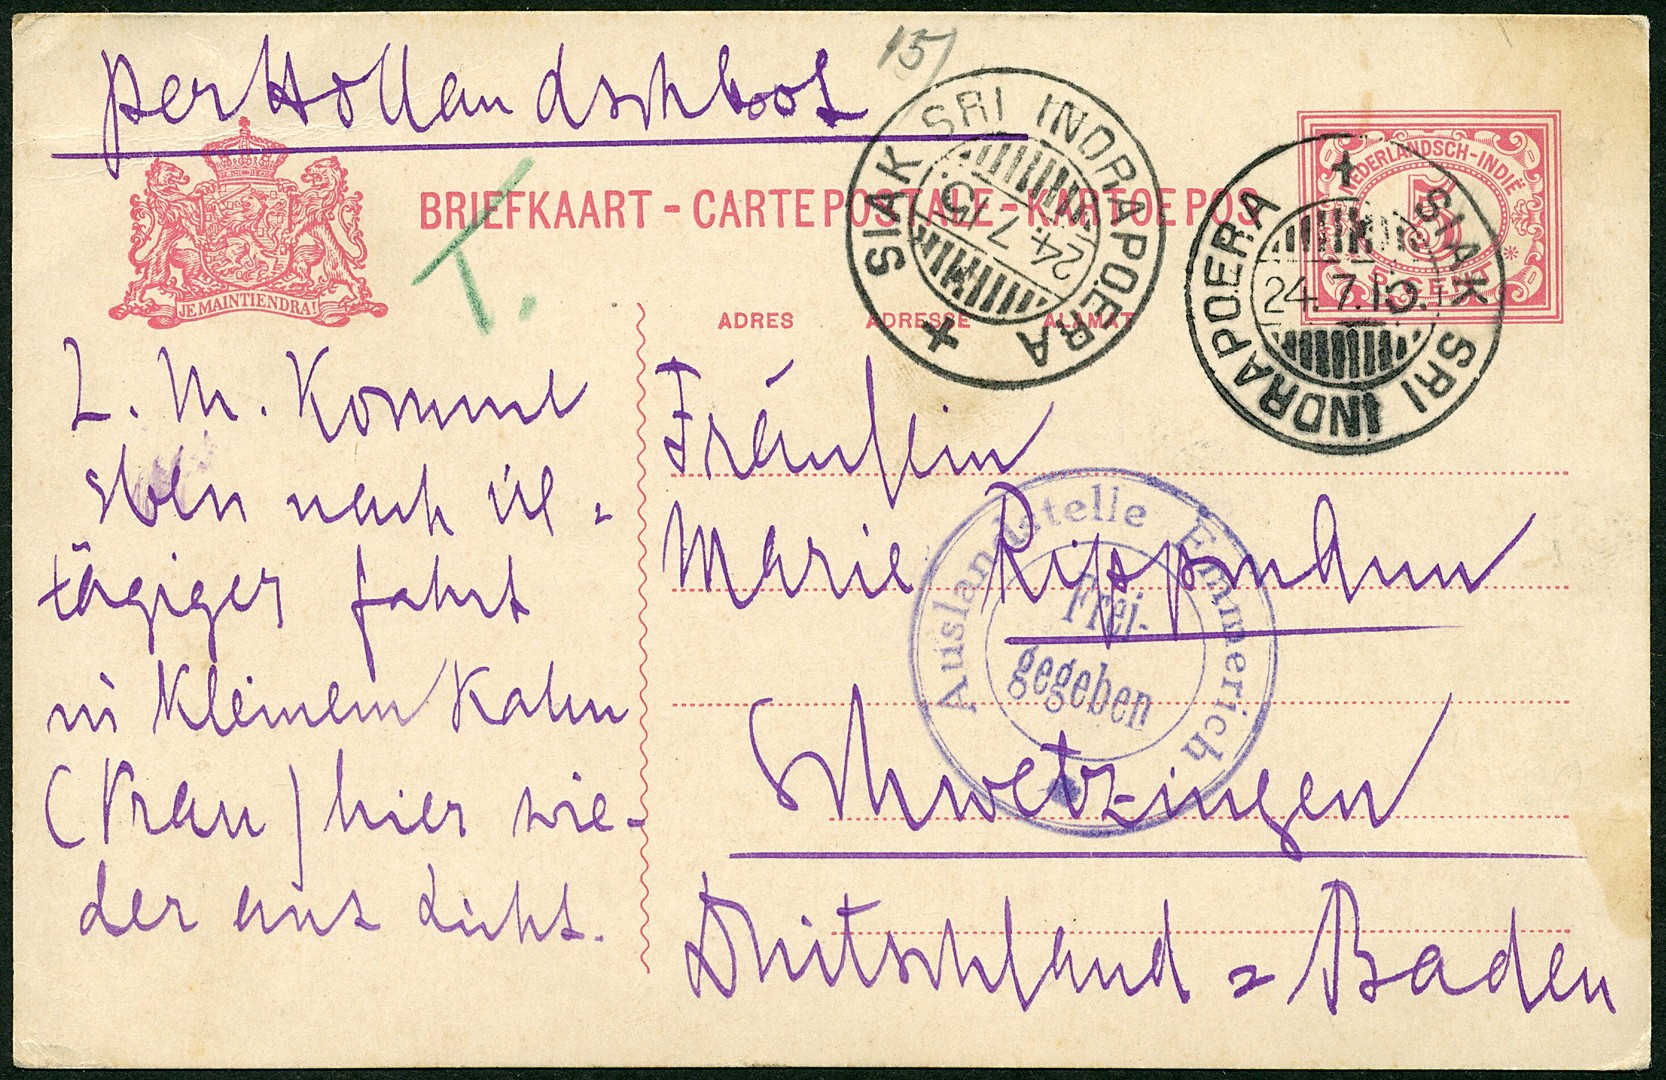 per Hollandschboot
15
BRIEFKAART - CARTE POSTALE - KARTOE POS
T.
SIAK SRI INDRAPOERA
24.7.15
NEDERLANDSCH-INDIË
5
CENT
SIAK SRI INDRAPOERA
24.7.15.
JE MAINTIENDRAI
ADRES ADRESSE ALAMAT
L. M. Komme
eben nach
tägiger Fahrt
in kleinem Kahn
(Prau) hier wie-
der ans Licht.
Fräulein
Marie Rippmann
Schwetzingen
Deutschland = Baden
Auslandstelle Emmerich
Frei-
gegeben